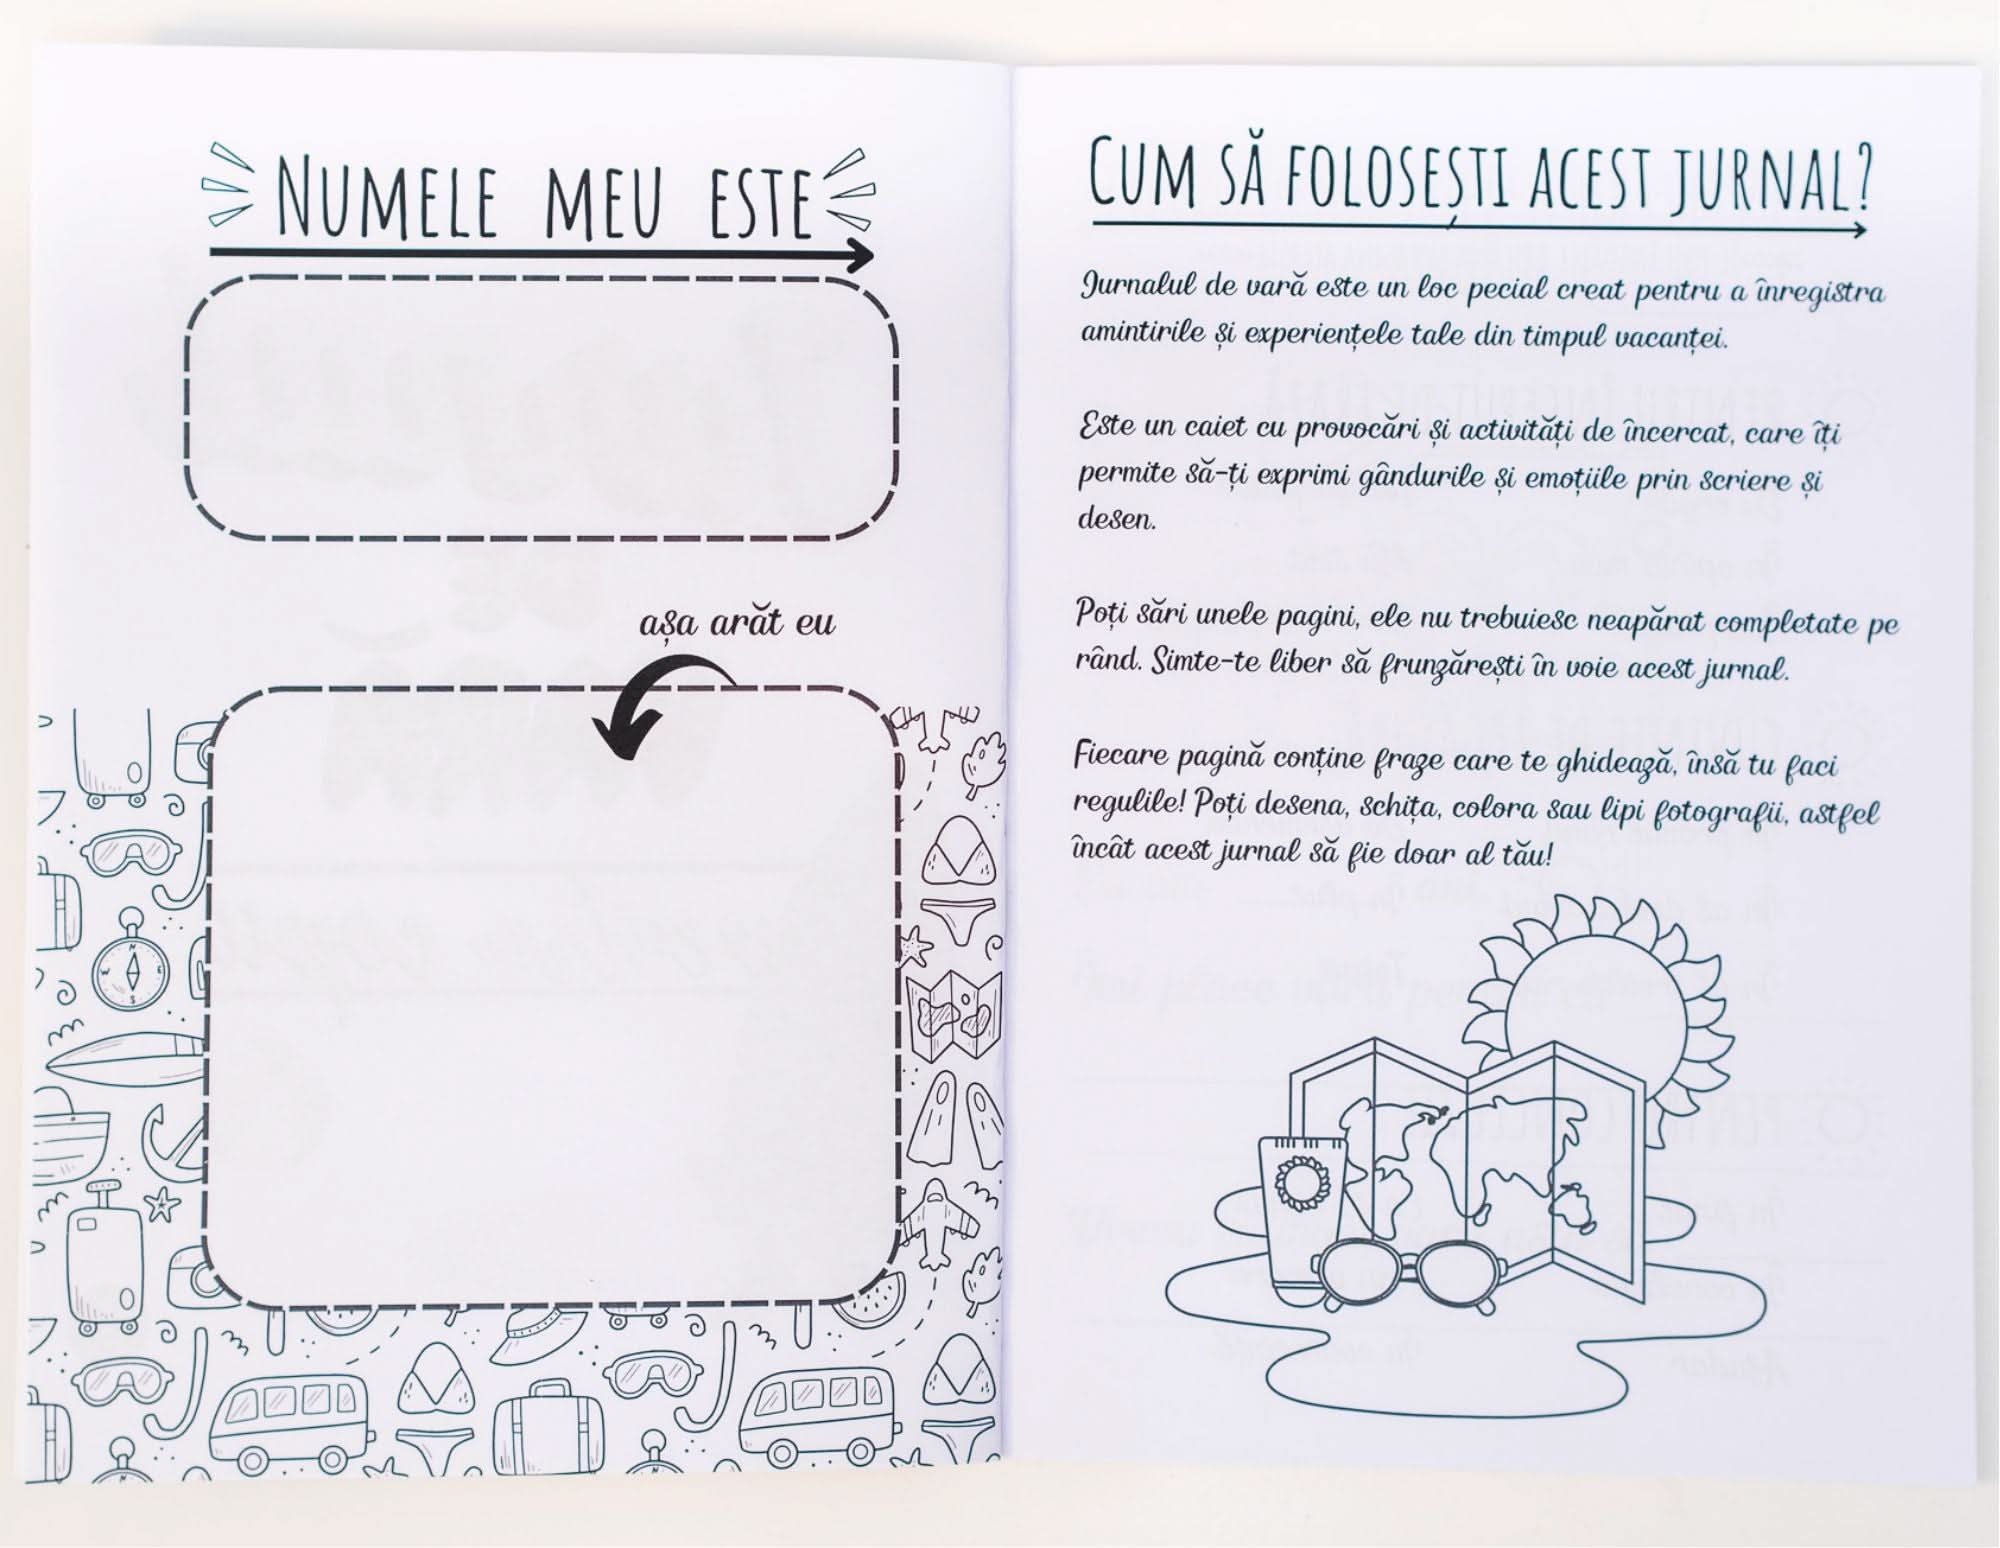 NUMELE MEU ESTE
așa arăt eu
CUM SĂ FOLOSEȘTI ACEST JURNAL?
Jurnalul de vară este un loc pecial creat pentru a înregistra
amintirile și experiențele tale din timpul vacanței.
Este un caiet cu provocări și activități de încercat, care îți
permite să-ți exprimi gândurile și emoțiile prin scriere și
desen.
Poți sări unele pagini, ele nu trebuiesc neapărat completate pe
rând. Simte-te liber să frunzărești în voie acest jurnal.
Fiecare pagină conține fraze care te ghidează, însă tu faci
regulile! Poți desena, schița, colora sau lipi fotografii, astfel
încât acest jurnal să fie doar al tău!